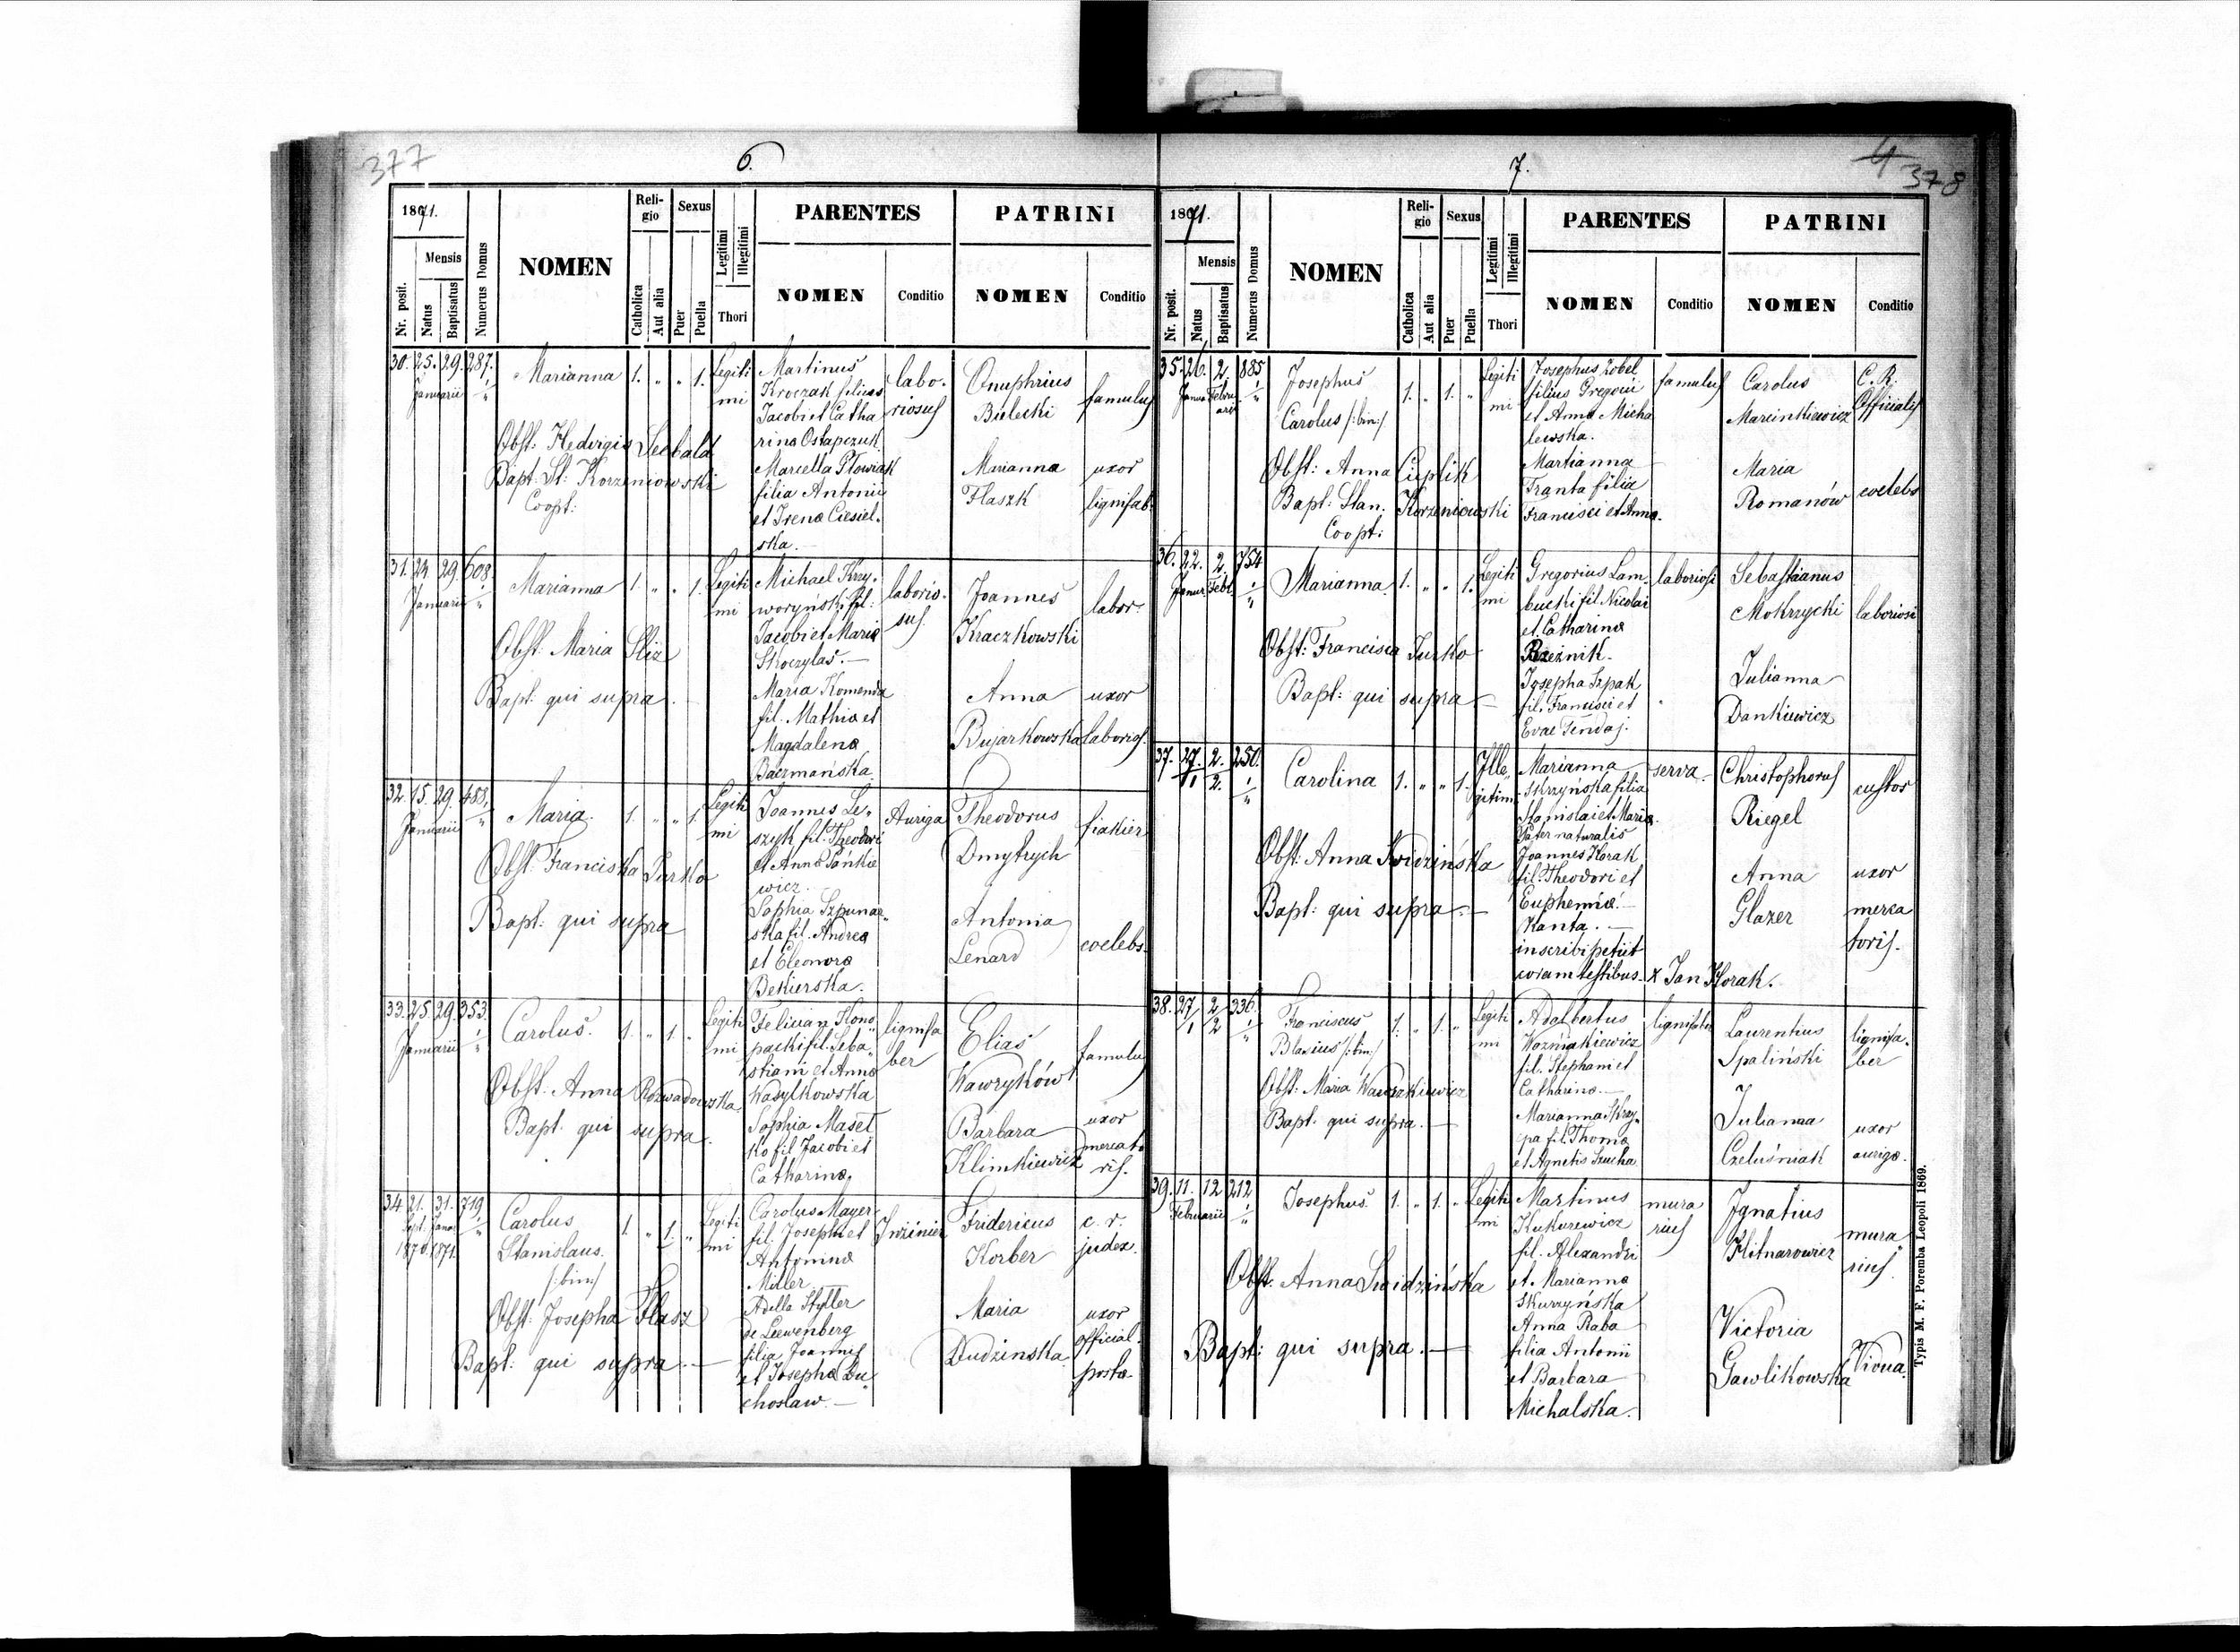 377
6.
1871.
Nr. posit.
Mensis
Natus
Baptisatus
Numerus Domus
NOMEN
Reli-
gio
Catholica
Aut alia
Sexus
Puer
Puella
Legitimi
Illegitimi
Thori
PARENTES
NOMEN
Conditio
PATRINI
NOMEN
Conditio
30. 25. 29. 287.
Januarii
Marianna 1. " " 1.
Legiti
mi
Obst: Hedvigis Seebald
Bapt: St: Korzeniowski
Coopt:
Martinus
Kroczak filius
Jacobi et Catha
rina Ostapczuk
Marcella Płowiak
filia Antonii
et Irena Ciesiel.
ska.
labo.
riosus
Onuphrius
Bielecki
famulus
Marianna
Flaszk
uxor
lignifab.
31. 24 29. 608.
Januarii
Marianna 1. " " 1.
Legiti
mi
Obst: Maria Sliz
Bapt: qui supra.
Michael Krzy.
woryński fil:
Jacobi et Maria
Skoczylas.
Maria Komenda
fil. Mathia et
Magdalena
Baczmańska.
laborio.
sus.
Joannes
Kraczkowski
labor.
Anna
Bujarkowska
uxor
laborios.
32. 15. 29. 488.
Januarii
Maria. 1. " " 1.
Legiti
mi
Obst: Franciska Turko
Bapt: qui supra
Joannes Le„
szyk fil. Theodori
et Anna Pańkie
wicz.
Sophia Szpunar„
ska fil. Andrea
et Eleonora
Bekierska.
Auriga
Theodorus
Dmytrych
fiakier
Antonia
Lenard
coelebs.
33. 25. 29. 353.
Januarii
Carolus. 1. " 1. "
Legiti
mi
Obst: Anna Rozwadowska.
Bapt. qui supra.
Felician Kono„
packi fil. Seba„
stiani et Anna
Wasylkowska
Sophia Maset
ko fil Jacobi et
Catharina,
lignifa
ber
Elias
Wawryków
famulus
Barbara
Klimkiewicz
uxor
mercato
ris.
34 21. 31. 719
Sept. Janu.
1870. 1871.
Carolus
Stanislaus.
/:bin:/
1. " 1. "
Legiti
mi
Obst: Josepha Flasz
Bapt: qui supra.
Carolus Mayer
fil. Josephi et
Antonina
Miller
Adella Styller
de Leewenberg
filia Joannis
et Josepha Du„
choslaw.
Inżinier
Fridericus
Korber
c. r.
judex.
Maria
Dudzinska
uxor
official.
posta.
7.
4
378
1871.
Nr. posit.
Mensis
Natus
Baptisatus
Numerus Domus
NOMEN
Reli-
gio
Catholica
Aut alia
Sexus
Puer
Puella
Legitimi
Illegitimi
Thori
PARENTES
NOMEN
Conditio
PATRINI
NOMEN
Conditio
35. 26. 2. 885
Janua Febru
arii
Josephus
Carolus /:bin:/
1. " 1. "
Legiti
mi
Obst: Anna Cieplik
Bapt: Stan. Korzeniowski
Coopt:
Josephus Zobel
filius Gregorii
et Anna Micha
lewska.
Martianna
Franta filia
Francisci et Anna.
famulus
Carolus
Marcinkiewicz
C. R.
Officialis
Maria
Romanów
coelebs
36. 22. 2. 754
Januar Febr.
Marianna 1. " " 1.
Legiti
mi
Obst: Francisca Turko
Bapt: qui supra
Gregorius Lam„
bucki fil Nicolai
et Catharina
Rzeźnik.
Josepha Szpak
fil. Francisci et
Evae Tendaj.
laboriosi
Sebastianus
Mokrzycki
laboriosi
Julianna
Dankiewicz
37. 27. 2. 250.
1 2.
Carolina 1. " " 1.
Ille„
gitimi
Obst: Anna Swidzińska
Bapt: qui supra.
Marianna
Skrzyńska filia
Stanislai et Maria.
Pater naturalis
Joannes Horak
fil. Theodori et
Euphemia
Kanta.
inscribi petiit
coram testibus. x Jan Horak.
serva.
Christophorus
Riegel
custos
Anna
Glazer
uxor
merca
toris.
38. 27 2 336.
1 2
Franciscus
Blasius /:bin:/
1. " 1. "
Legiti
mi
Obst: Maria Wawrzakiewicz
Bapt. qui supra.
Adalbertus
Woźniakiewicz
fil. Stephani et
Catharina.
Marianna Skrzy„
pa fil. Thoma
et Agnetis Szucha
lignifaber
Laurentius
Spaliński
lignifa.
ber
Julianna
Czeluśniak
uxor
auriga.
39. 11. 12 212
Februarii
Josephus. 1. " 1. "
Legiti
mi
Obst. Anna Swidzińska
Bapt: qui supra.
Martinus
Kukurewicz
fil. Alexandri
et Marianna
Skurzyńska
Anna Raba
filia Antonii
et Barbara
Michalska.
mura
rius
Ignatius
Klitnarowicz
mura
rius.
Victoria
Gawlikowska
Vidua.
Typis M. F. Poremba Leopoli 1869.